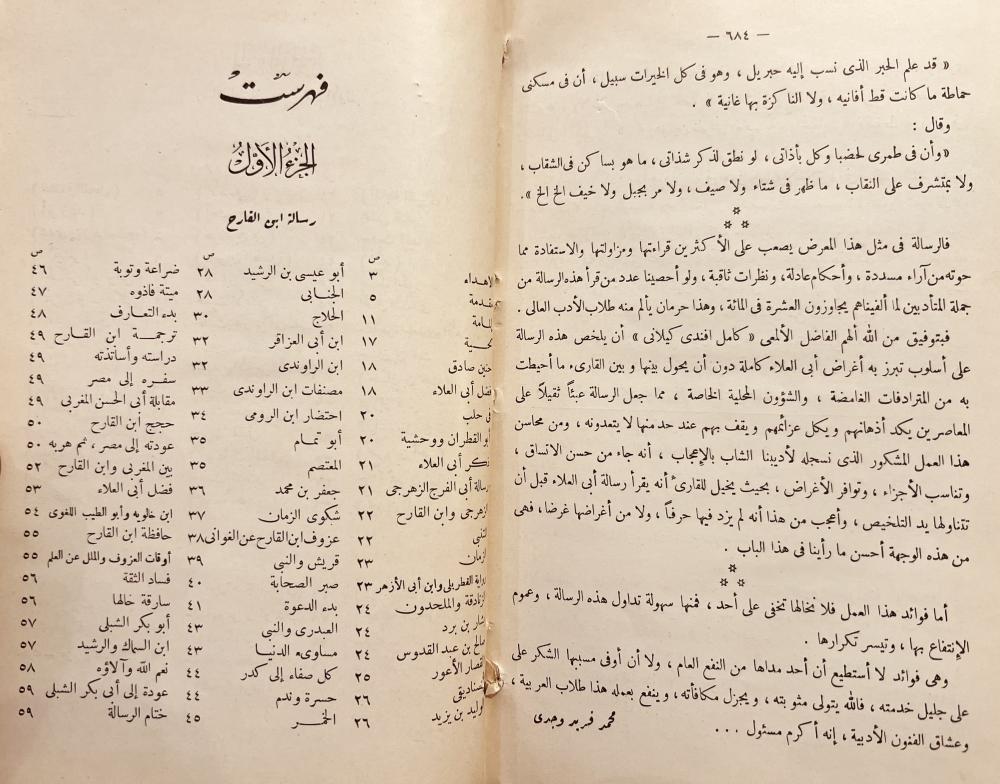 — ٦٨٤ —
« قد علم الحبر الذى نسب إليه حبريل ، وهو فى كل الخيرات سبيل ، أن فى مسكنى
حماطة ما كانت قط أفانيه ، ولا الناكزة بها غانية » .
وقال :
«وأن فى طمرى لحضبا وكل بأذاتى ، لو نطق لذكر شذاتى ، ما هو بساكن فى الشقاب ،
ولا بمتشرف على النقاب ، ما ظهر فى شتاء ولا صيف ، ولا مر بجبل ولا خيف الخ الخ » .
فالرسالة فى مثل هذا المعرض يصعب على الأكثرين قراءتها ومزاولتها والاستفادة مما
حوته من آراء مسددة ، وأحكام عادلة ، ونظرات ثاقبة ، ولو أحصينا عدد من قرأ هذه الرسالة من
جملة المتأدبين لما ألفيناهم يجاوزون العشرة فى المائة ، وهذا حرمان يألم منه طلاب الأدب العالى .
فبتوفيق من الله ألهم الفاضل الألمعى « كامل افندى كيلانى » أن يلخص هذه الرسالة
على أسلوب تبرز به أغراض أبى العلاء كاملة دون أن يحول بينها وبين القارىء ما أحيطت
به من المترادفات الغامضة ، والشؤون المحلية الخاصة ، مما جعل الرسالة عبئاً ثقيلاً على
المعاصرين يكد أذهانهم ويكل عزائمهم ويقف بهم عند حد منها لا يتعدونه ، ومن محاسن
هذا العمل المشكور الذى نسجله لأديبنا الشاب بالإعجاب ، أنه جاء من حسن الاتساق ،
وتناسب الأجزاء ، وتوافر الأغراض ، بحيث يخيل للقارئ أنه يقرأ رسالة أبى العلاء قبل أن
تتناولها يد التلخيص ، وأعجب من هذا أنه لم يزد فيها حرفاً ، ولا من أغراضها غرضا ، فهى
من هذه الوجهة أحسن ما رأينا فى هذا الباب .
أما فوائد هذا العمل فلا نخالها تخفى على أحد ، فمنها سهولة تداول هذه الرسالة ، وعموم
الإنتفاع بها ، وتيسر تكرارها .
وهى فوائد لا أستطيع أن أحد مداها من النفع العام ، ولا أن أوفى مسببها الشكر على
على جليل خدمته ، فالله يتولى مثوبته ، ويجزل مكافأته ، وينفع بعمله هذا طلاب العربية ،
وعشاق الفنون الأدبية ، إنه أكرم مسئول . . .
محمد فريد وجدى
فهرست
الجزء الأول
رسالة ابن القارح
ص
الاهداء ٣
٥
١١
١٧
بن صادق ١٨
فضل أبى العلاء ١٨
فى حلب ٢٠
أبو القطران ووحشية ٢٠
ذكر أبى العلاء ٢١
رسالة أبى الفرج الزهرجى ٢١
الزهرجى وابن القارح ٢٢
٢٢
الزمان ٢٣
رواية القطربلى وابن أبى الأزهر ٢٣
الزنادقة والملحدون ٢٤
بشار بن برد ٢٤
صالح بن عبد القدوس ٢٤
القصار الأعور ٢٥
الصناديقى ٢٦
الوليد بن يزيد ٢٦
ص
أبو عيسى بن الرشيد ٢٨
الجنابى ٢٨
الحلاج ٣٠
ابن أبى العزاقر ٣٢
ابن الراوندى ٣٢
مصنفات ابن الراوندى ٣٣
احتضار ابن الرومى ٣٤
أبو تمام ٣٥
المعتصم ٣٥
جعفر بن محمد ٣٦
شكوى الزمان ٣٧
عزوف ابن القارح عن الغوانى ٣٨
قريش والنبى ٣٩
صبر الصحابة ٤٠
بدء الدعوة ٤١
العبدرى والنبى ٤٣
مساوىء الدنيا ٤٣
كل صفاء إلى كدر ٤٤
حسرة وندم ٤٤
الخمر ٤٥
ص
ضراعة وتوبة ٤٦
ميتة فاذوه ٤٧
بدء التعارف ٤٨
ترجمة ابن القارح ٤٩
دراسته وأساتذته ٤٩
سفره إلى مصر ٤٩
مقابلة أبى الحسن المغربى ٤٩
حجج ابن القارح ٥٠
عودته إلى مصر ، ثم هربه ٥٠
بين المغربى وابن القارح ٥٢
فضل أبى العلاء ٥٣
ابن خالويه وأبو الطيب اللغوى ٥٤
حافظة ابن القارح ٥٥
أوقات العزوف والملل عن العلم ٥٥
فساد الثقة ٥٦
سارقة خالها ٥٦
أبو بكر الشبلى ٥٧
ابن السماك والرشيد ٥٧
نعم الله وآلاؤه ٥٨
عودة إلى أبى بكر الشبلى ٥٩
ختام الرسالة ٥٩